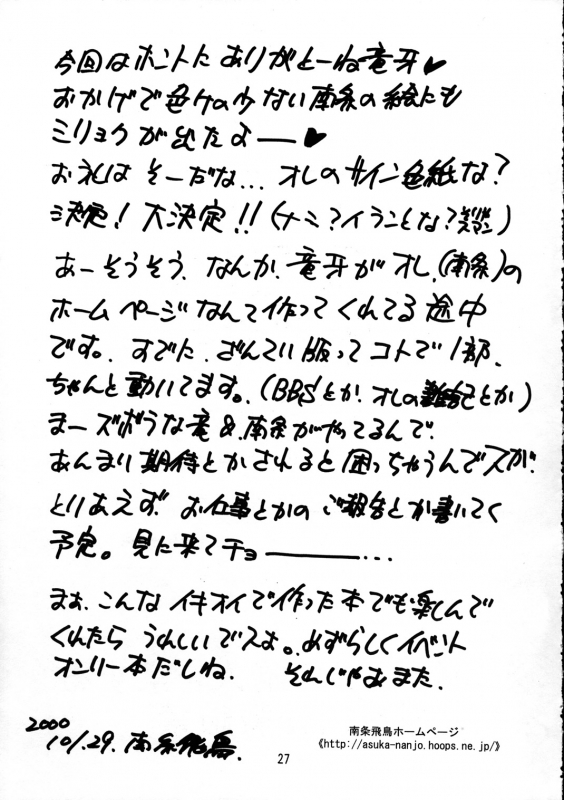 今回はホントにありがとーね竜牙♥
おかげで色ケの少ない南条の絵にも
ミリョクが出たよ――♥
お礼はそーだな...オレのサイン色紙な?
決定!大決定!!(ナミ?イランことな?)
あーそうそう、なんか、竜牙がオレ、(南条)の
ホームページなんて作ってくれてる途中
です。すでに、ざんてい版ってコトで1部、
ちゃんと動いてます。(BBSとか、オレの雑記とか)
まーズボラな竜&南条がやってるんで、
あんまり期待とかされると困っちゃうんでスが、
とりあえず、お仕事とかのご報告とか書いてく
予定。見に来てチョ―――...
まぁ、こんなイキオイで作った本でも楽しんで
くれたらうれしいでスよ。めずらしくイベント
オンリー本だしね。 そんじゃあまた。
2000
10/.29. 南条飛鳥.
南条飛鳥ホームページ
《http://asuka-nanjo.hoops.ne.jp/》
27